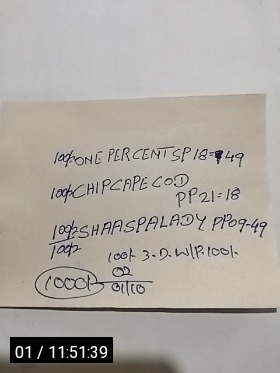 100% ONE PERCENT SP 18=49
100% CHIPCAPECOD
PP 21=18
100% SHAASPALADY PP09-49
100%
100% 3.D.W/P.100%
02
1000% 01/10
01 / 11:51:39